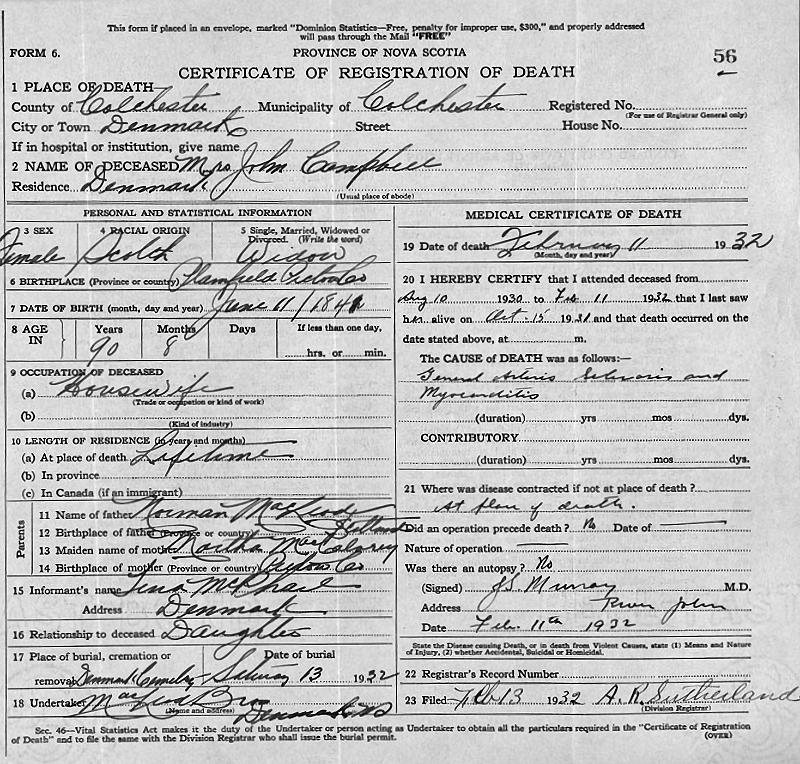 This form if placed in an envelope, marked "Dominion Statistics—Free, penalty for improper use, $300," and properly addressed
will pass through the Mail "FREE"
FORM 6.
PROVINCE OF NOVA SCOTIA
56
CERTIFICATE OF REGISTRATION OF DEATH
1 PLACE OF DEATH
County of Colchester Municipality of Colchester Registered No.
(For use of Registrar General only)
City or Town Denmark Street House No.
If in hospital or institution, give name
2 NAME OF DECEASED Mrs John Campbell
Residence Denmark
(Usual place of abode)
PERSONAL AND STATISTICAL INFORMATION
3 SEX 4 RACIAL ORIGIN 5 Single, Married, Widowed or
Divorced. (Write the word)
Female Scotch Widow
6 BIRTHPLACE (Province or country) Plainfield Pictou Co
7 DATE OF BIRTH (month, day and year) June 11/1841
8 AGE IN Years Months Days If less than one day,
90 8 hrs. or min.
9 OCCUPATION OF DECEASED
(a) Housewife
(Trade or occupation or kind of work)
(b)
(Kind of industry)
10 LENGTH OF RESIDENCE (in years and months)
(a) At place of death Lifetime
(b) In province
(c) In Canada (if an immigrant)
Parents
11 Name of father Norman MacLeod
12 Birthplace of father (Province or country)
13 Maiden name of mother Martha
14 Birthplace of mother (Province or country) Pictou Co
15 Informant's name McPhail
Address Denmark
16 Relationship to deceased Daughter
17 Place of burial, cremation or Date of burial
removal Denmark Cemetery 13 1932
18 Undertaker Bros
(Name and address) Denmark NS
MEDICAL CERTIFICATE OF DEATH
19 Date of death February 11 1932
(Month, day and year)
20 I HEREBY CERTIFY that I attended deceased from
Aug 10 1930 to Feb 11 1932 that I last saw
her alive on Oct. 15 1931 and that death occurred on the
date stated above, at m.
The CAUSE of DEATH was as follows:—
General Arterio Sclerosis and
Myocarditis
(duration) yrs mos dys.
CONTRIBUTORY
(duration) yrs mos dys.
21 Where was disease contracted if not at place of death?
At place of death.
Did an operation precede death? No Date of
Nature of operation
Was there an autopsy? No
(Signed) J S Murray M.D.
Address River John
Date Feb. 11th 1932
State the Disease causing Death, or in death from Violent Causes, state (1) Means and Nature
of Injury, (2) whether Accidental, Suicidal or Homicidal.
22 Registrar's Record Number
23 Filed Feb 13 1932 A. R. Sutherland
(Division Registrar)
Sec. 46—Vital Statistics Act makes it the duty of the Undertaker or person acting as Undertaker to obtain all the particulars required in the "Certificate of Registration
of Death" and to file the same with the Division Registrar who shall issue the burial permit.
(OVER)